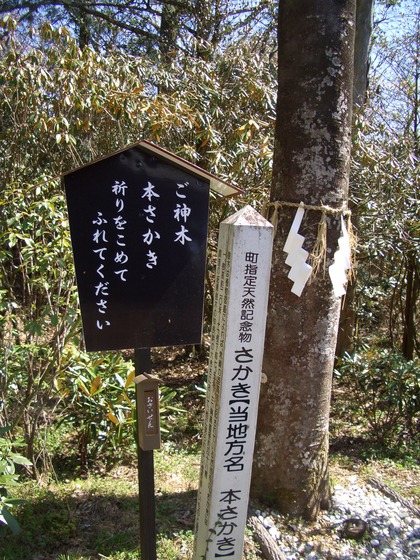 ご神木
本さかき
祈りをこめて
ふれてください
おさいせん
町指定天然記念物 さかき【当地方名 本さかき】